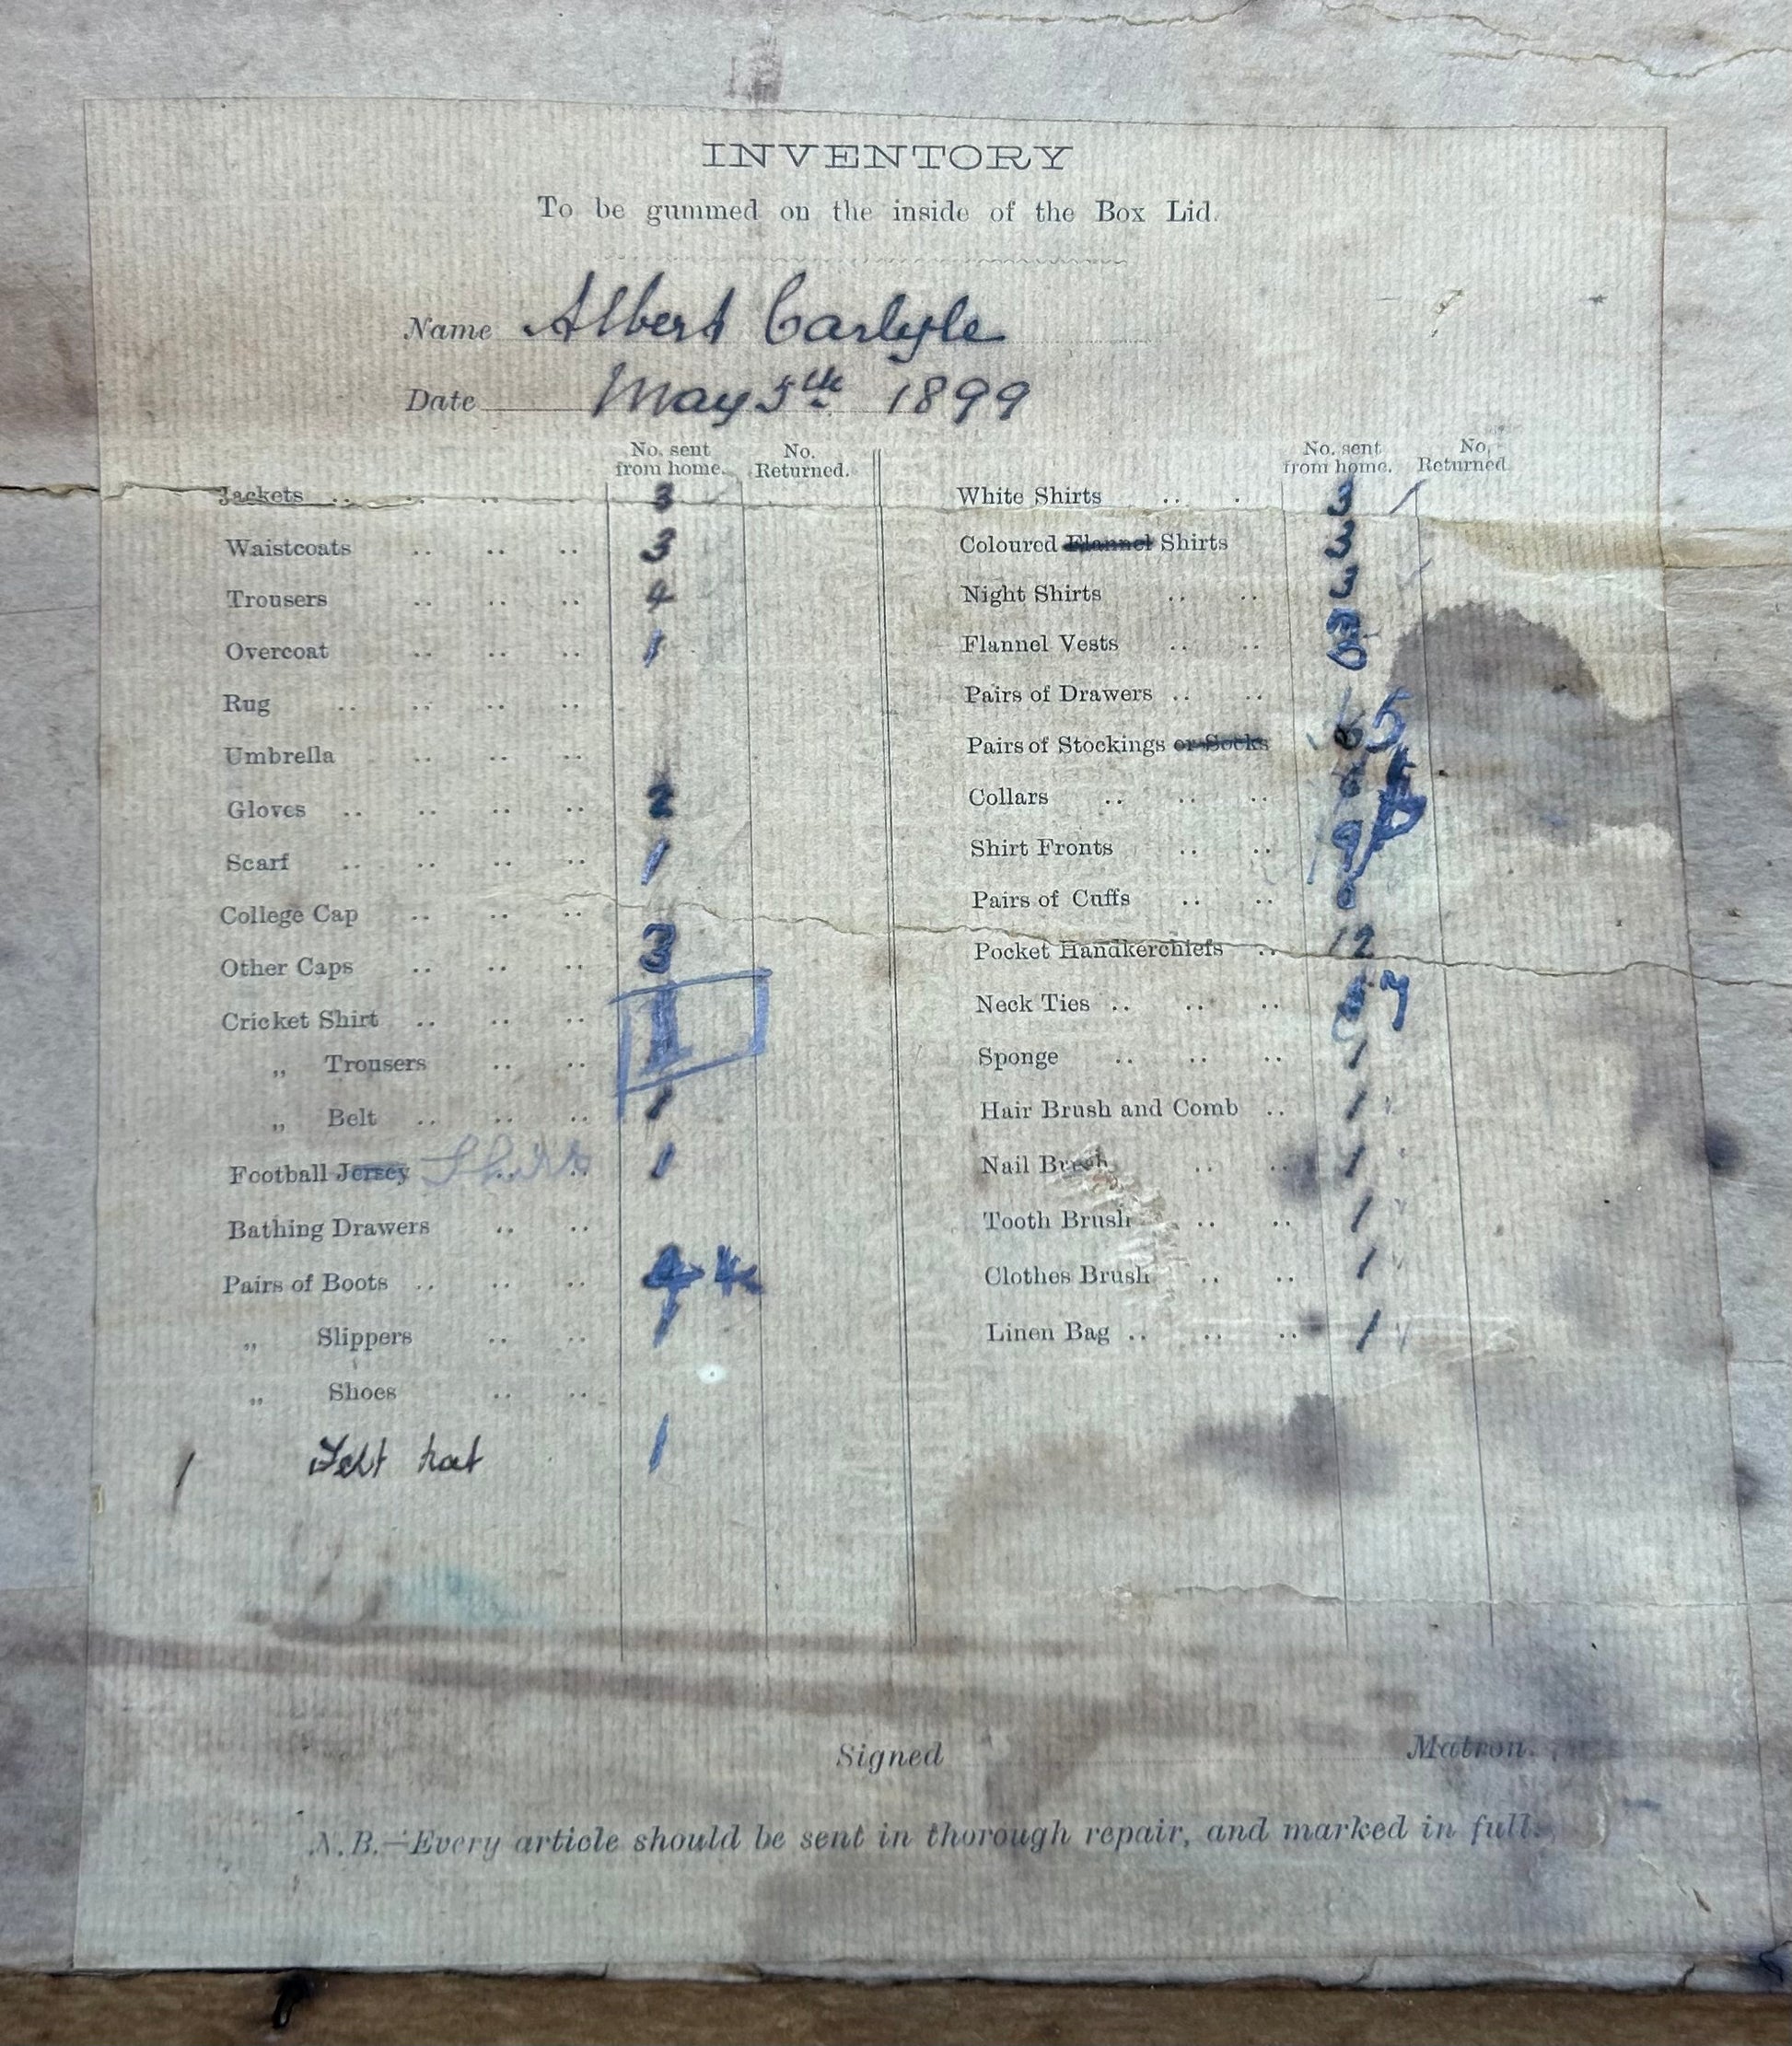 INVENTORY
To be gummed on the inside of the Box Lid.
Name Albert Carlyle
Date May 5th 1899
No. sent from home. No. Returned.
Jackets .. .. .. .. 3
Waistcoats .. .. .. 3
Trousers .. .. .. 4
Overcoat .. .. .. 1
Rug .. .. .. ..
Umbrella .. .. ..
Gloves .. .. .. .. 2
Scarf .. .. .. .. 1
College Cap .. .. ..
Other Caps .. .. .. 3
Cricket Shirt .. .. .. 1
„ Trousers .. ..
„ Belt .. .. .. 1
Football Jersey Shirt 1
Bathing Drawers .. ..
Pairs of Boots .. .. .. 4 4
„ Slippers .. .. 1
„ Shoes .. ..
1 Felt hat 1
No. sent from home. No. Returned.
White Shirts .. . 3
Coloured Flannel Shirts 3
Night Shirts .. .. 3
Flannel Vests .. ..
Pairs of Drawers .. ..
Pairs of Stockings or Socks 5
Collars .. .. ..
Shirt Fronts .. ..
Pairs of Cuffs .. ..
Pocket Handkerchiefs .. 12
Neck Ties .. .. .. 7
Sponge .. .. .. 1
Hair Brush and Comb .. 1
Nail Brush .. .. 1
Tooth Brush .. .. 1
Clothes Brush .. .. 1
Linen Bag .. .. .. 1
Signed Matron.
N.B.—Every article should be sent in thorough repair, and marked in full.